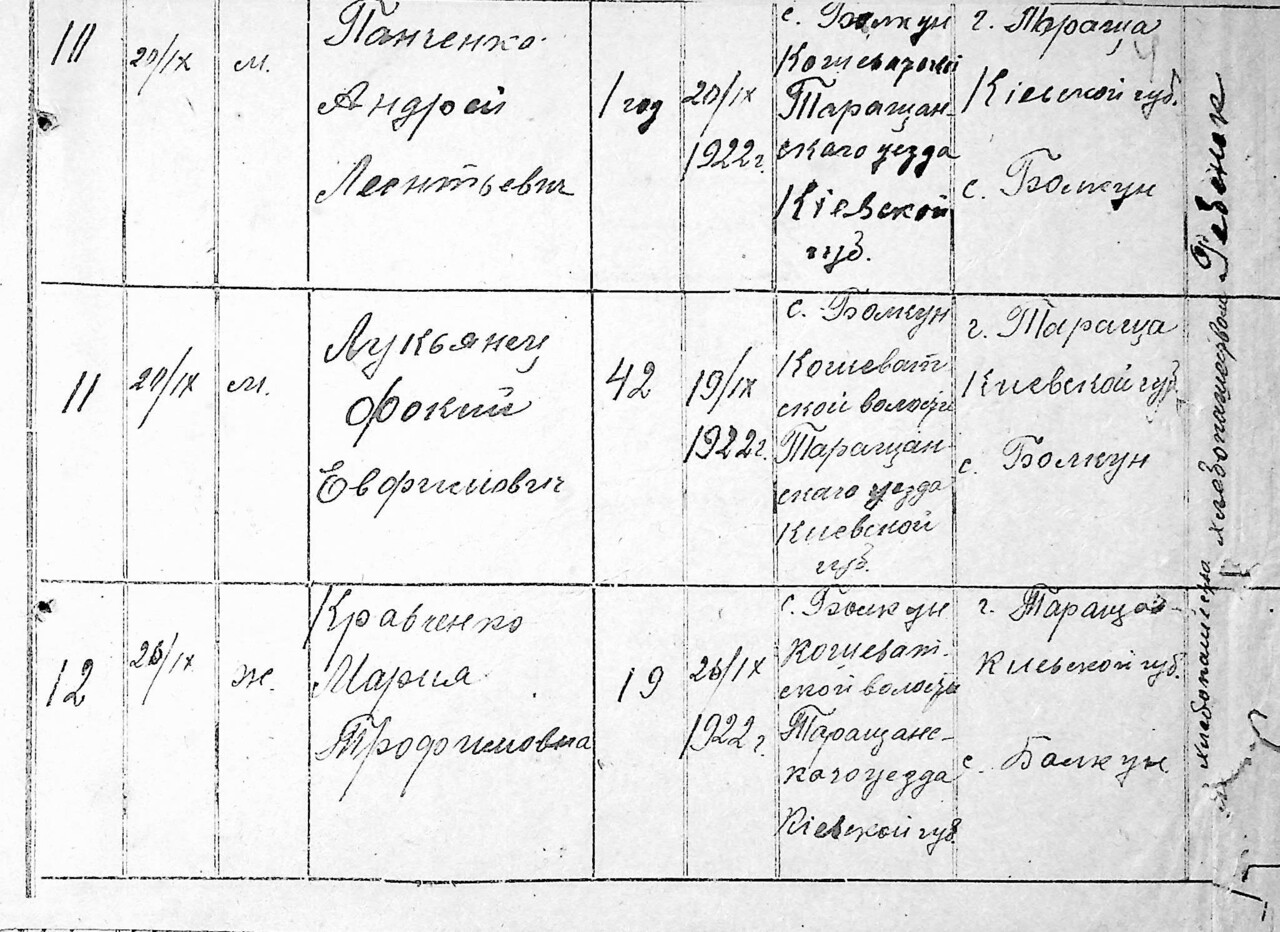 10
20/IX
м.
Панченко
Андрей
Леонтьевич
1 год
20/IX
1922г.
с. Бомкун
Таращан-
скаго уезда
Кіевской
губ.
г. Тараща
Кіевской губ.
с. Бомкун
Ребенок
11
20/IX
м.
Лукьянец
Фокий
Евфимович
42
19/IX
1922г.
с. Бомкун
Кошеват
ской волости
Таращан-
скаго уезда
Киевской
губ.
г. Тараща
Киевской губ.
с. Бомкун
хлебопашеством
12
26/IX
ж.
Кравченко
Мария
Трофимовна
19
26/IX
1922 г.
с. Бомкун
Кошеват-
ской волости
Таращанс-
кого уезда
Кіевской губ.
г. Тараща
Киевской губ.
с. Бомкун